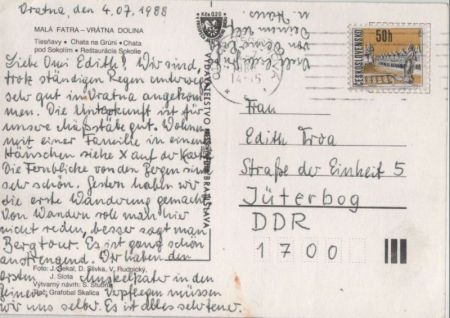 Vratna, den 4.07.1988
MALÁ FATRA – VRÁTNA DOLINA
Tiesňavy • Chata na Grúni • Chata
pod Sokolím • Reštaurácia Sokolie
Liebe Omi Edith! Wir sind,
trotz ständigen Regen unterwegs
sehr gut in Vratna angekom-
men. Die Unterkunft ist für
unsere Maßstäbe gut. Wohnen
mit einer Familie in einem
Häuschen siehe X auf der Karte
Die Fernblicke von den Bergen sind
sehr schön. Gestern haben wir
die erste Wanderung gemacht
Von Wandern soll man hier
nicht reden, besser sagt man
Bergtour. Es ist ganz schön
anstrengend. Wir haben den
ersten Muskelkater in den
Beinen. Verpflegen müssen
wir uns selber. Es ist alles sehr teuer.
Foto: J. Sekal, D. Slivka, V. Rudnický,
J. Slota
Výtvarný návrh: S.
Tlač: Grafobal Skalica
Kčs 0,20
VYDAVATEĽSTVO
BRATISLAVA
u. Haus.
ČESKOSLOVENSKO
50h
Frau
Edith Troa
Straße der Einheit 5
Jüterbog
DDR
1700